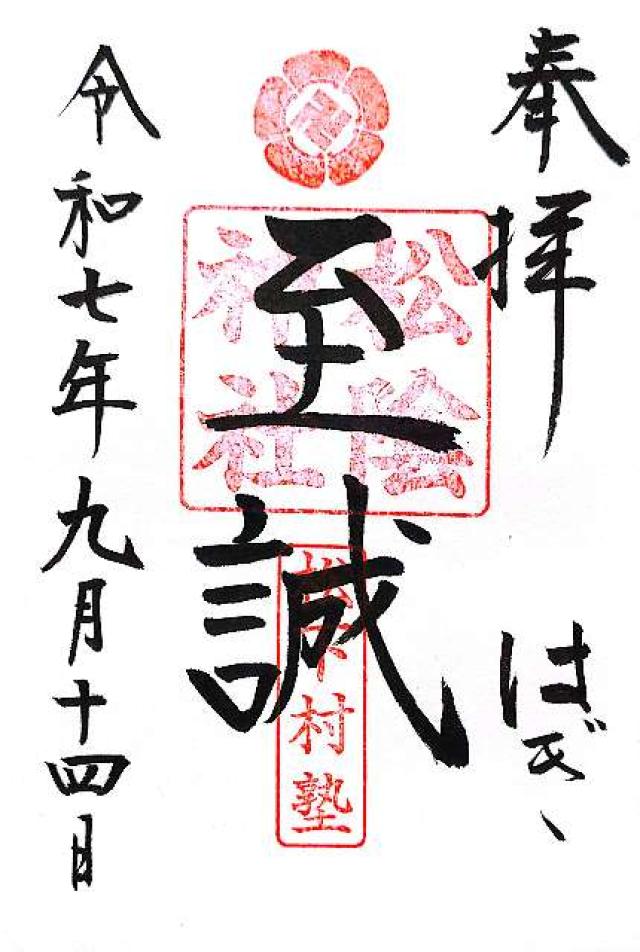 奉拝
はぎ
松陰
神社
至誠
松下村塾
令和七年九月十四日